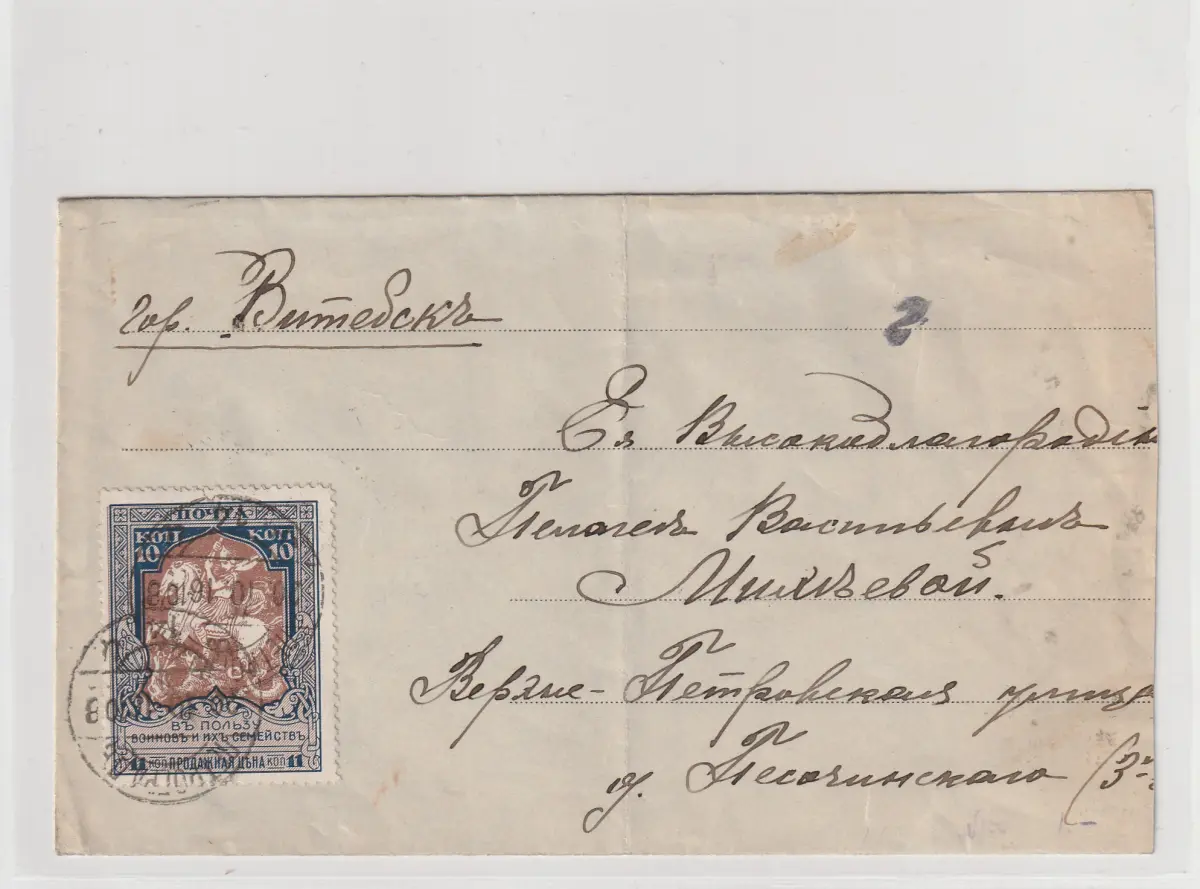 гор. Витебскъ
Ея Высокоблагородію
Пелагеѣ Васильевнѣ
Михѣевой.
Верхне-Петровская улица
д. Песочинскаго (3-
ПОЧТА
КОП КОП
10 10
ВЪ ПОЛЬЗУ
ВОИНОВЪ И ИХЪ СЕМЕЙСТВЪ
11 КОП ПРОДАЖНАЯ ЦѢНА КОП 11